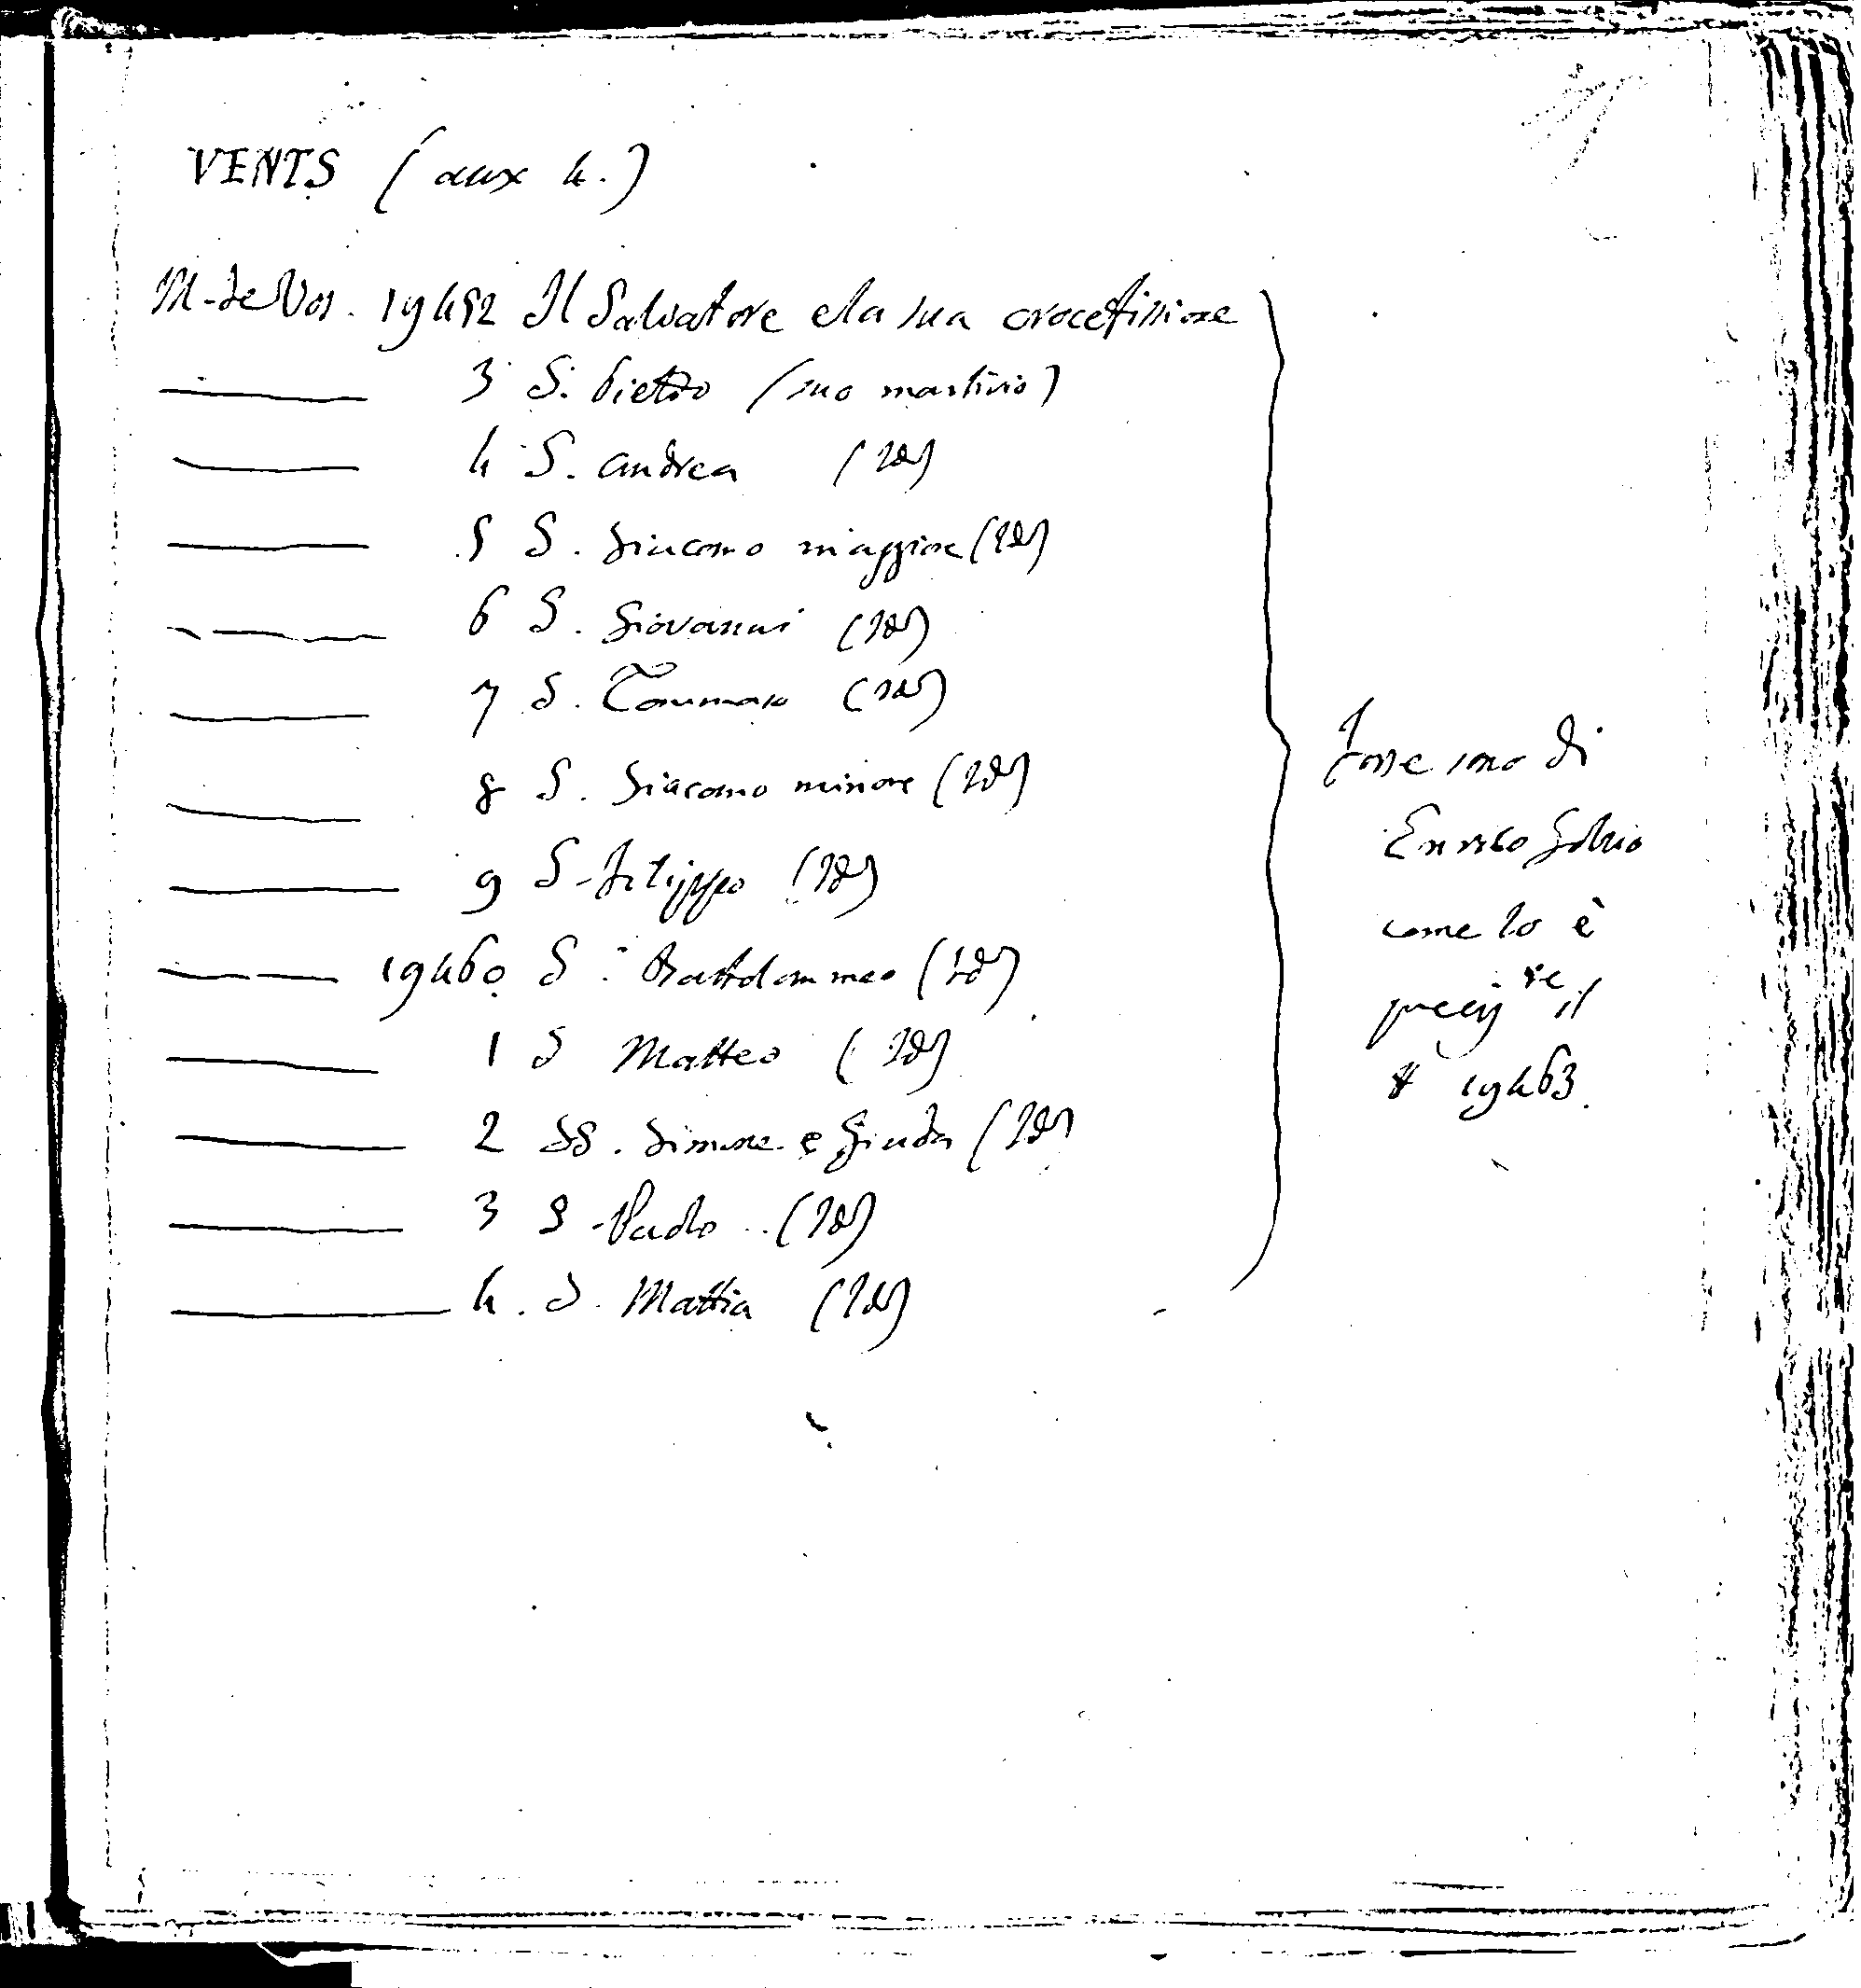 VENTS (aux 4.)
M. de Vos. 19452 Il Salvatore e la sua crocefissione
3 S. Pietro (suo martirio)
4 S. Andrea (Id)
5 S. Giacomo maggiore (Id)
6 S. Giovanni (Id)
7 S. Tommaso (Id)
8 S. Giacomo minore (Id)
9 S. Filippo (Id)
19460 S. Bartolommeo (Id)
1 S Matteo (Id)
2 SS. Simone e Giuda (Id)
3 S. Paolo (Id)
4. S. Mattia (Id)
Forse sono di
Enrico
come lo è
il
# 19463.